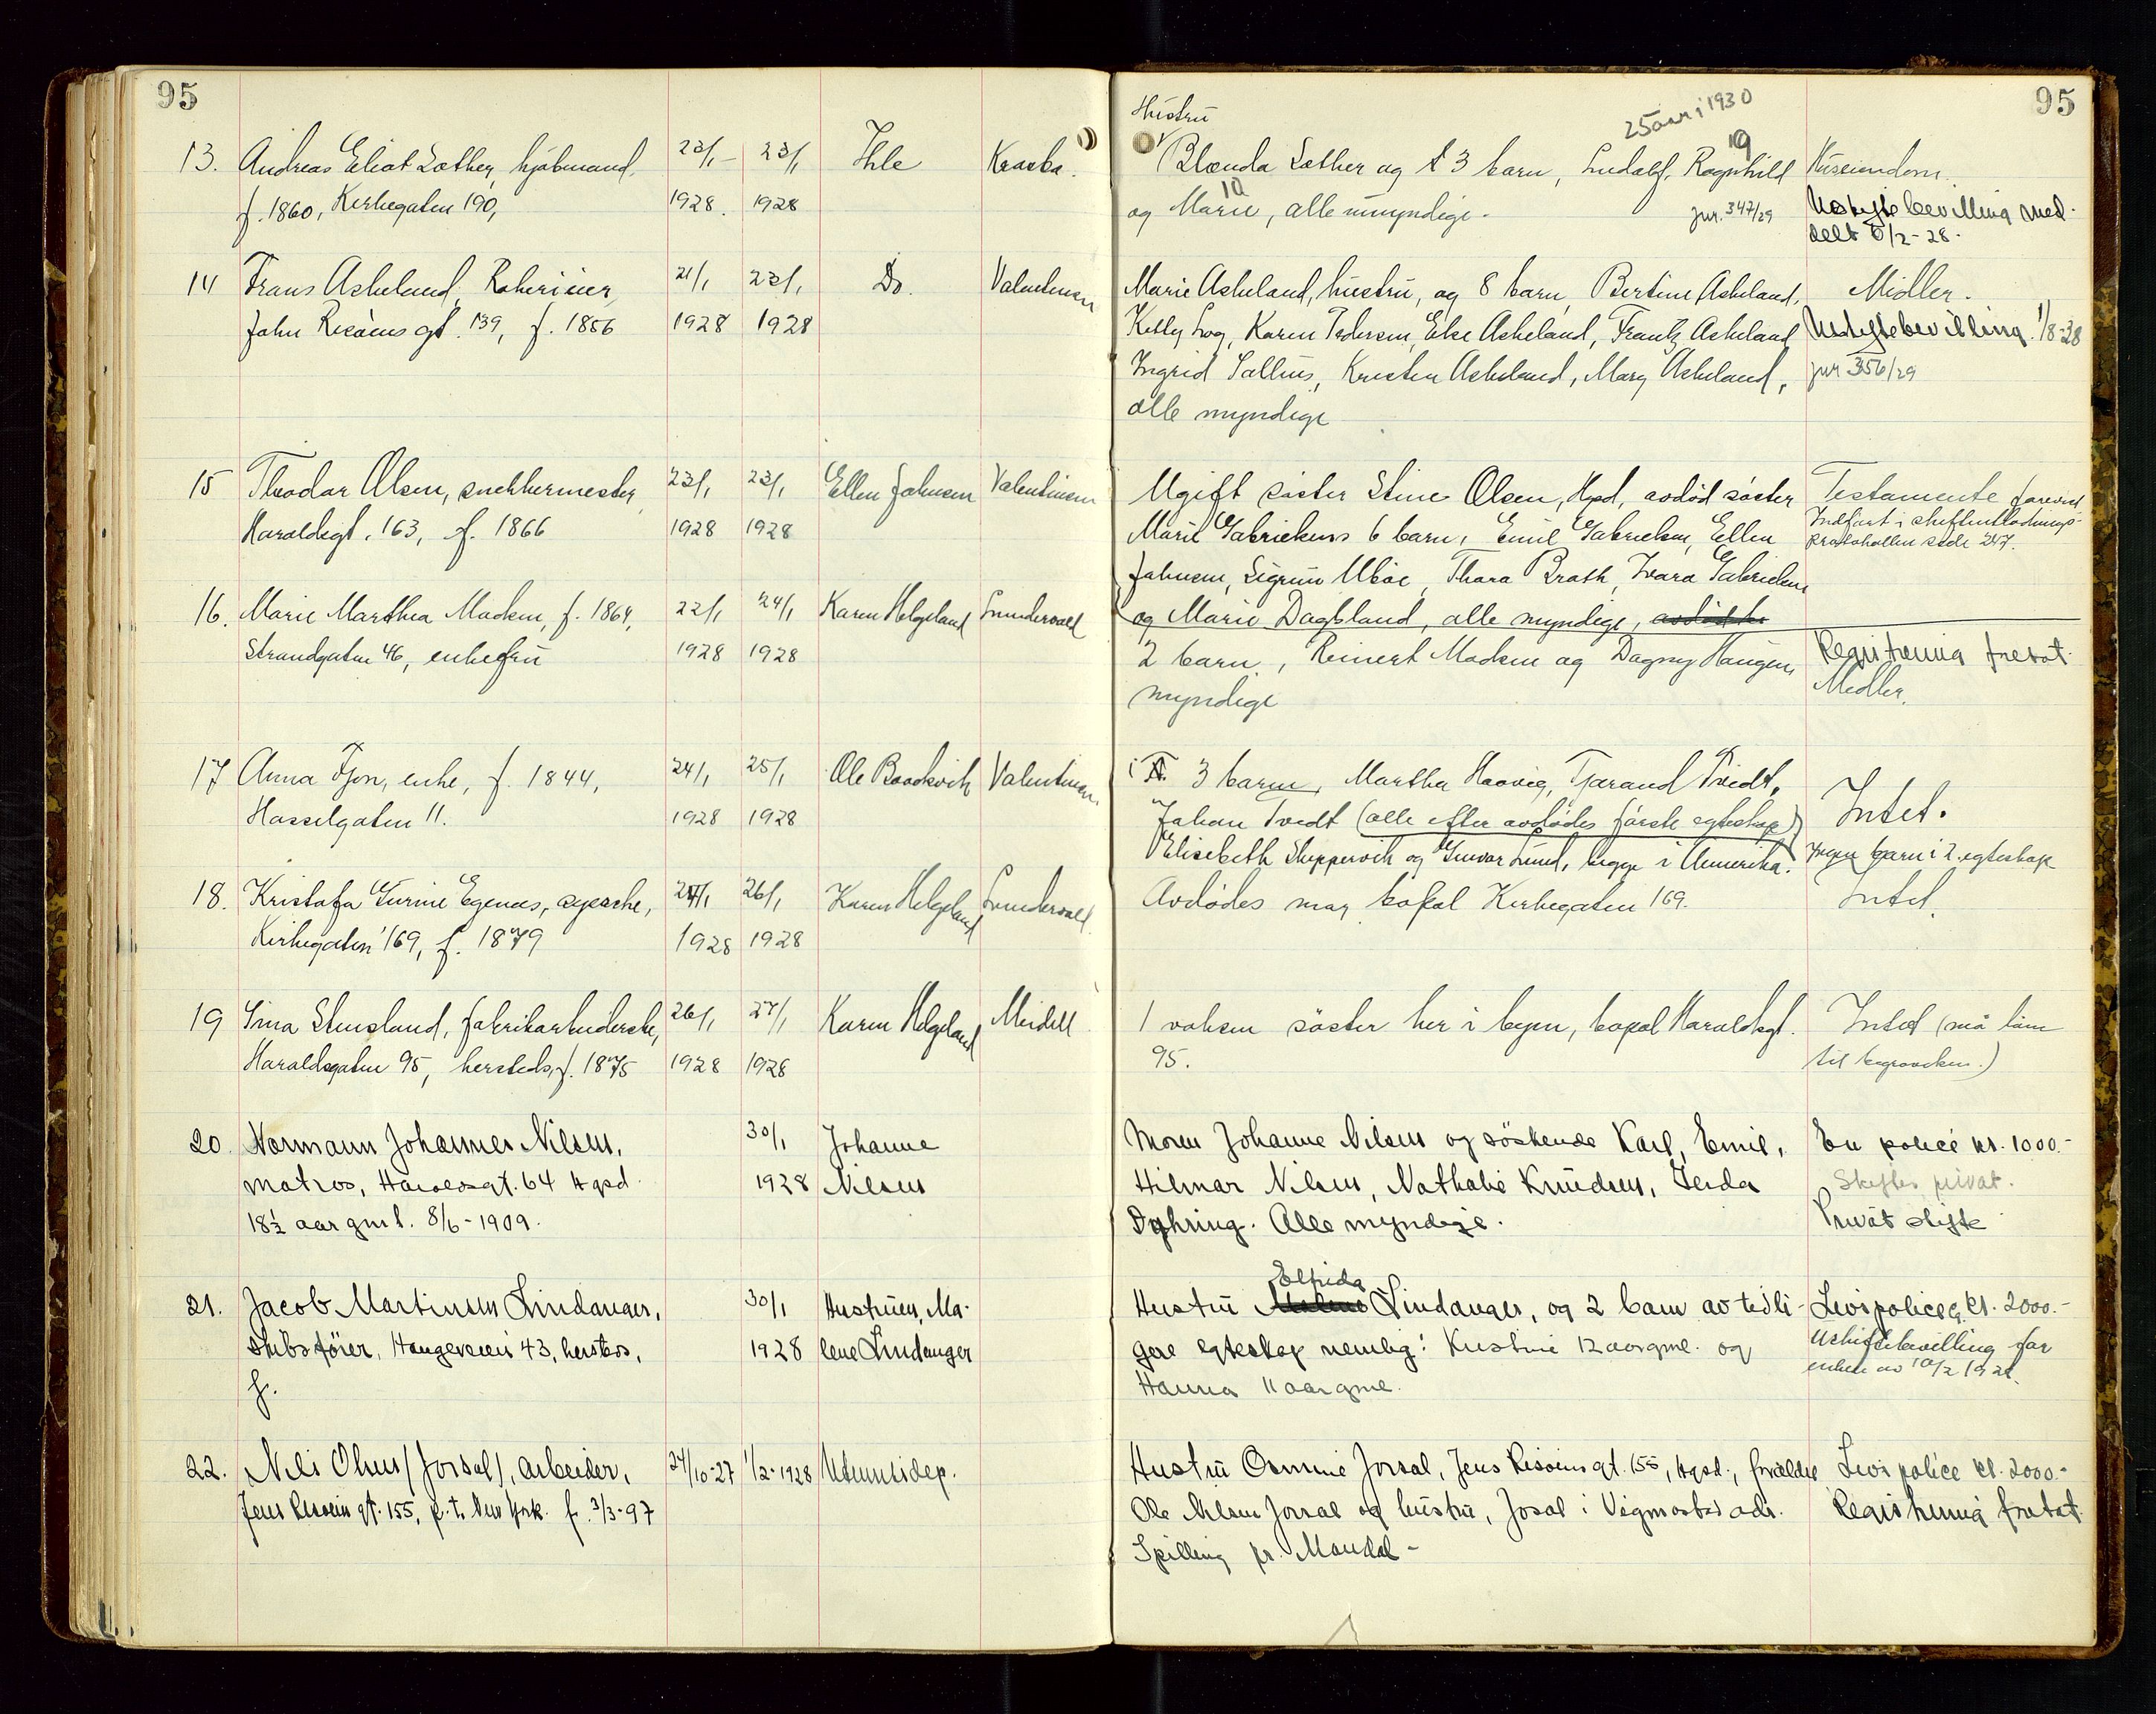 95
13. Andreas Eliat Sæther, kjøbmand. 23/1 - 23/1 Ihle Kracka.
f. 1860, Kirkegaten 190, 1928. 1928
14 Frans Askeland, Rokeri eier, 21/1 23/1 Do. Valentinsen
John Risøens gt. 139, f. 1856 1928 1928
15 Theodor Olsen, snekkermester, 23/1 23/1 Ellen Johnsen Valentinsen
Haraldsgt. 163, f. 1866 1928 1928
16. Marie Marthea Madsen, f. 1864, 22/1 24/1 Karen Helgeland
Strandgaten 46, enkefru 1928 1928
17 Anna Tjon, enke, f. 1844, 24/1 25/1 Ole Valentinsen
Hasselgaten 11. 1928 1928
18. Kristofa Gurine Egenæs, 24/1 26/1 Karen Helgeland
Kirkegaten 169, f. 1879 1928 1928
19 Sina Stensland, fabrikarbeiderske, 26/1 27/1 Karen Helgeland Meidell
Haraldsgaten 95, hersteds, f. 1875 1928 1928
20. Normann Johannes Nilsen, 30/1 Johanne
matros, Haraldsgt. 64 Hgsd. 1928 Nilsen
18½ aar gml. 8/6-1909.
21. Jacob Martinsen Lindanger, 30/1 Hustruen, Ma-
skibsfører, Haugeveien 43, hersteds, 1928 lene Lindanger
f.
22. Nils Olsen (Jorsal), arbeider, 27/10-27 1/2-1928 Utenriksdep.
Jens Risøens gt. 155, p.t. New York. f. 3/3-97
95
Hustru 25 aar i 1930
Blenda Sæther og 3 barn, Ludolf, Ragnhild 19 Huseiendom.
og Marie 10, alle umyndige. jur. 347/29 Uskiftebevilling med-
delt 6/2-28.
Marie Askeland, hustru, og 8 barn, Bertine Askeland, Midler.
Kitty Log, Karen Pedersen, Else Askeland, Frantz Askeland Uskiftebevilling 1/8-28
Ingrid Sallius, Kristen Askeland, Mary Askeland, jur 356/29
alle myndige
Ugift søster Stine Olsen, Hgsd, avdød søster Testamente
Marie Gabrielsens 6 barn, Emil Gabrielsen, Ellen Indført i skifteutlodnings-
protokollen side 247.
Johnsen, Sigrun Ubøe, Thora Brath, Ivara Gabrielsen
og Marie Dagsland, alle myndige, avdødes
2 barn, Reinert Madsen og Dagny Haugen, Registrering fretat.
myndige Midler.
3 barn, Martha Haavig, Tjarand Tvedt, Intet.
Johan Tvedt (alle efter avdødes første egteskap)
Elisebeth Skeppervik og Gunvor Lund, begge i Amerika. Ingen barn i 2. egteskap
Avdødes mor bopæl Kirkegaten 169. Intet.
1 voksen søster her i byen, bopæl Haraldsgt. Intet (må laane
95. til begravelsen.)
Moren Johanne Nilsen og søskende Karl, Emil, En police kr. 1000.-
Hilmar Nilsen, Nathalie Knudsen, Gerda Skiftes privat.
Dyhring. Alle myndige. Privat skifte
Elfrida
Hustru Malene Lindanger, og 2 barn av tidli- Livspolice kr. 2000.-
gere egteskap nemlig: Kristine 12 aar gml. og Uskiftebevilling for
Hanna 11 aar gml. enken av 10/2 1928.
Hustru Osmine Jorsal, Jens Risøens gt. 155, Hgsd., forældre Livspolice kr. 2000.-
Ole Nilsen Jorsal og hustru, Josal i Vigmostad adr. Registrering fretat.
Spilling pr. Mandal -